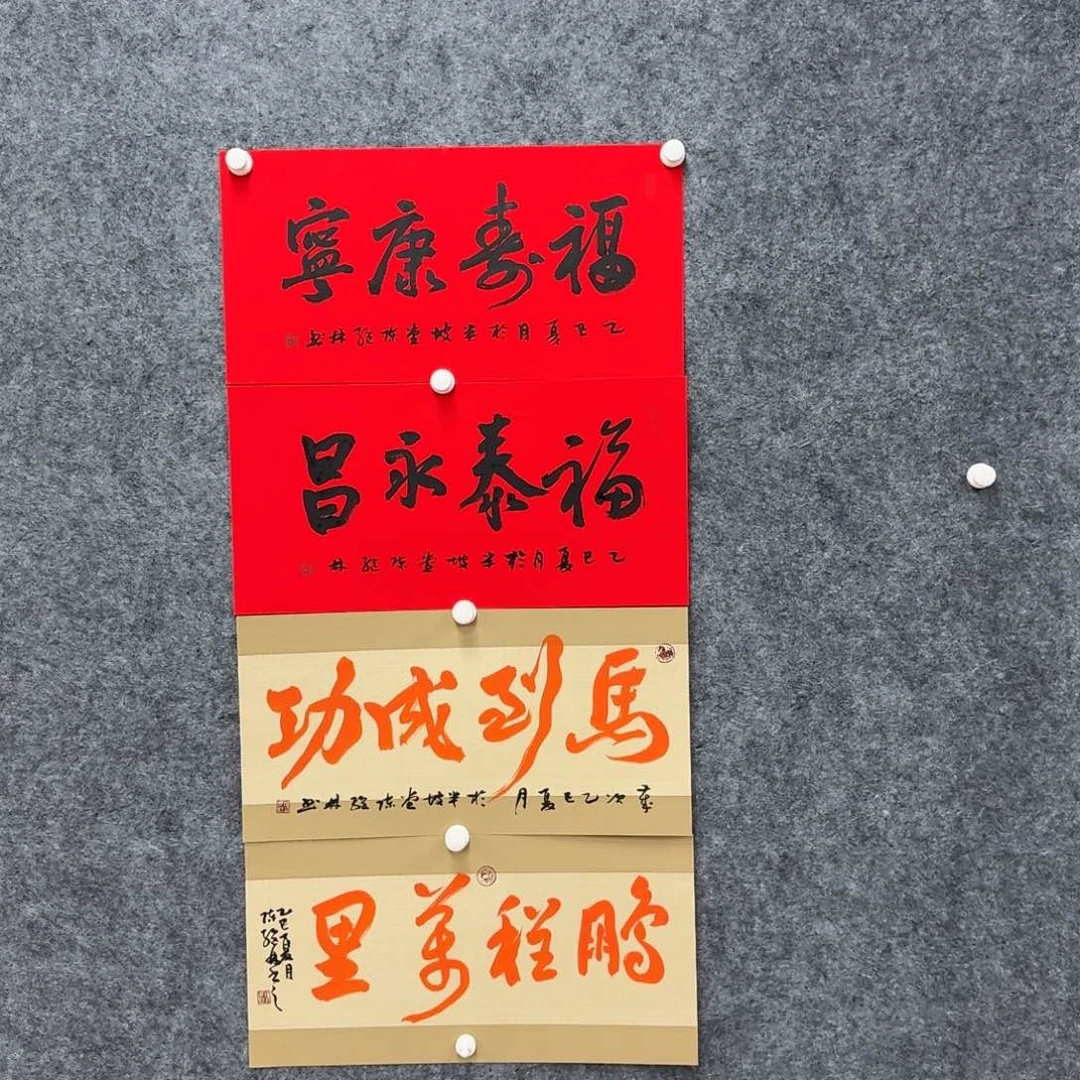 福壽康寧
乙巳夏月於半坡堂陈经林书
福泰永昌
乙巳夏月於半坡堂陈经林
馬到成功
歲次乙巳夏月於半坡堂陈经林书
鵬程萬里
乙巳夏月
陈经林书之